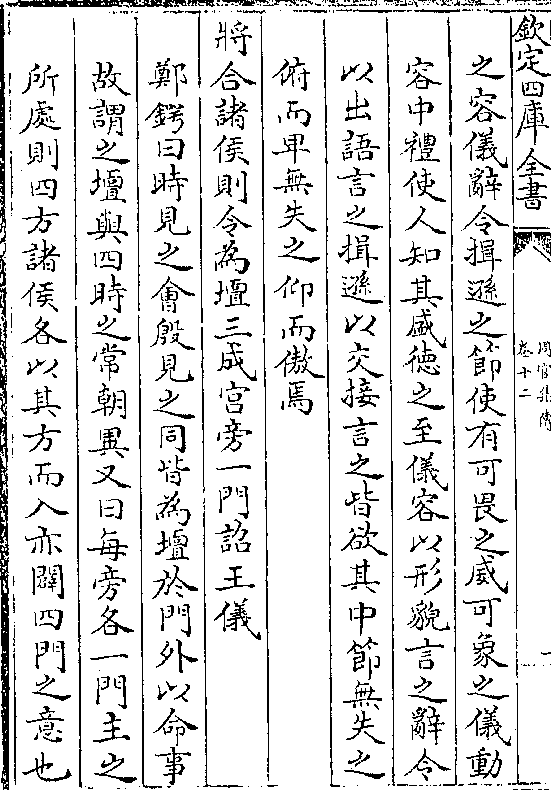 欽定四庫全書
卷十二
之容儀辭令揖遜之節使有可畏之威可象之儀動
容中禮使人知其盛徳之至儀容以形貌言之辭令
以出語言之揖遜以交接言之皆欲其中節無失之
俯而卑無失之仰而傲焉
將合諸侯則令為壇三成宫旁一門詔王儀
鄭鍔曰時見之㑹殷見之同皆為壇於門外以命事
故謂之壇與四時之常朝異又曰每旁各一門主之
所處則四方諸侯各以其方而入亦闢四門之意也